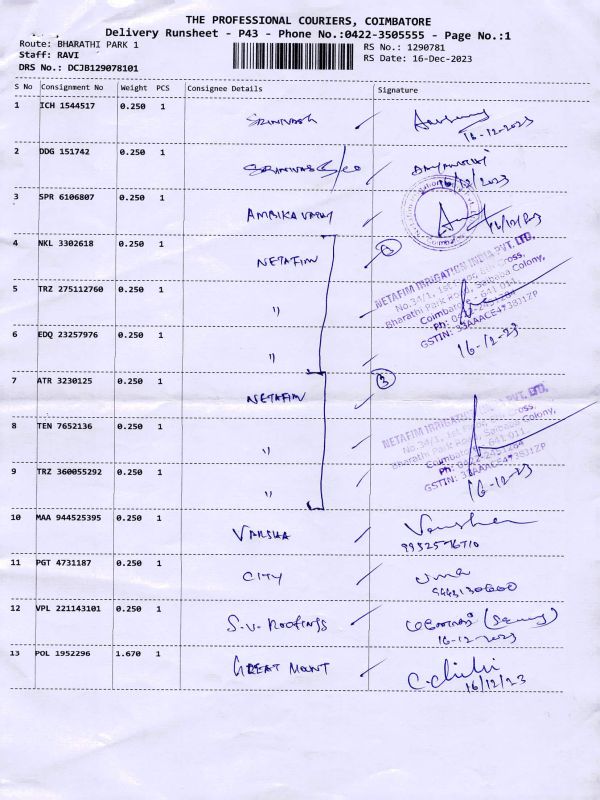 THE PROFESSIONAL COURIERS, COIMBATORE
Delivery Runsheet - P43 - Phone No.:0422-3505555 - Page No.:1
Route: BHARATHI PARK 1
RS No.: 1290781
Staff: RAVI
RS Date: 16-Dec-2023
DRS No.: DCJB129078101
S No Consignment No Weight PCS Consignee Details Signature
1 ICH 1544517 0.250 1 SRINIVASH
16-12-2023
2 DDG 151742 0.250 1
16/12/2023
3 SPR 6106807 0.250 1
16/12/203
4 NKL 3302618 0.250 1 NETAFIM
NETAFIM IRRIGATION INDIA PVT. LTD.
No.34/1, 1st
Bharathi Park Road, Saibaba Colony,
Coimbatore - 641 011.
5 TRZ 275112760 0.250 1 "
GSTIN: 33AAACE4738J1ZP
6 EDQ 23257976 0.250 1 "
16-12-23
7 ATR 3230125 0.250 1 NETAFIM 3
NETAFIM IRRIGATION PVT. LTD.
No.34/1, 1st
8 TEN 7652136 0.250 1 "
Bharathi Park Road, Saibaba Colony,
Coimbatore - 641 011.
GSTIN: 33AAACE4738J1ZP
9 TRZ 360055292 0.250 1 "
16-12-23
10 MAA 944525395 0.250 1 VARSHA
11 PGT 4731187 0.250 1 CITY uma
12 VPL 221143101 0.250 1 S.V. Roofings
16-12-2023
13 POL 1952296 1.670 1 GREAT MOUNT
16/12/23